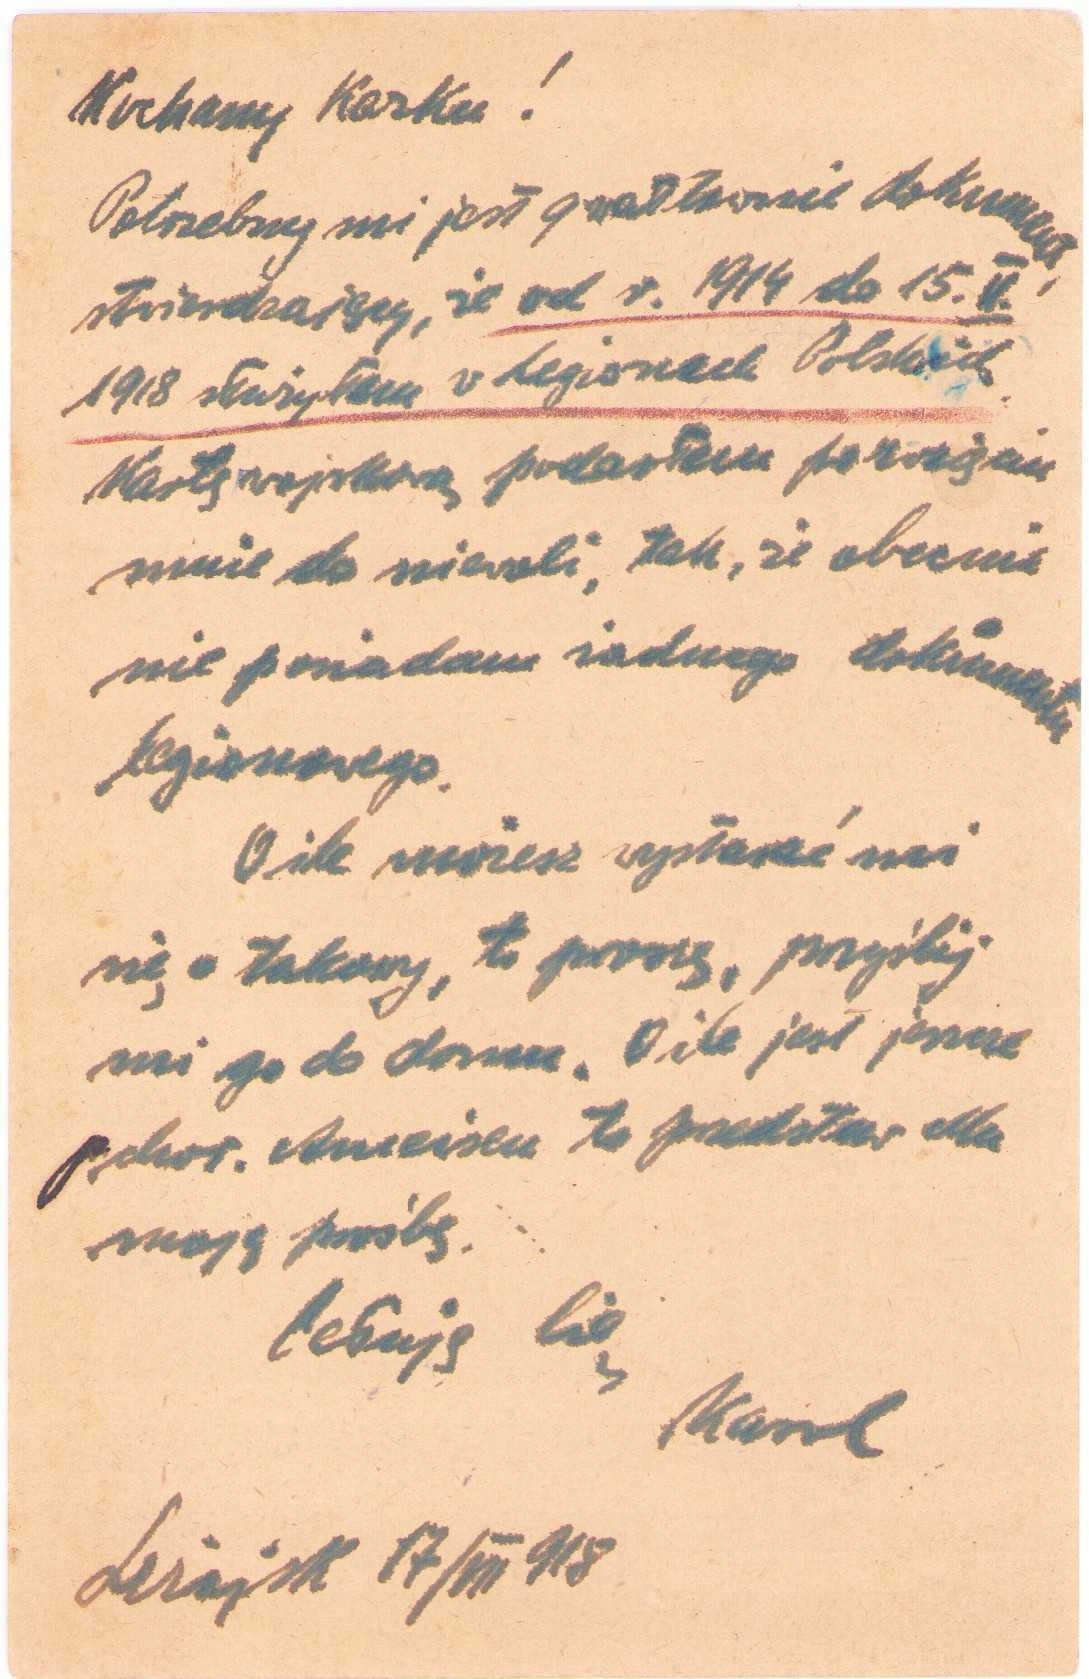 Kochany Kazku!
Potrzebny mi jest gwałtownie dokument,
stwierdzający, że od r. 1914 do 15. II.
1918 służyłem w Legionach Polskich.
Kartę wojskową podarłem po wzięciu
mnie do niewoli, tak, że obecnie
nie posiadam żadnego dokumentu
legionowego.
O ile możesz wystarać mi
się o takowy, to proszę, przyślij
mi go do domu. O ile jest jeszcze
p. chor. to przedstaw Mu
moją prośbę.
Całuję Cię
Karol
Leżajsk 17/VII 918